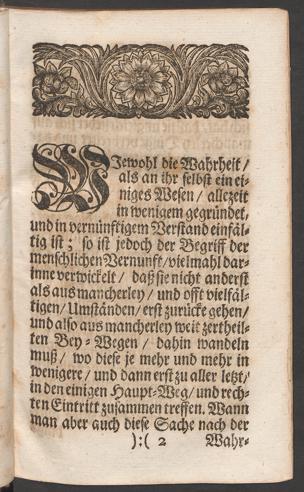 WJewohl die Wahrheit /
als an ihr selbst ein ei-
niges Wesen / allezeit
in wenigem gegründet,
und in vernünftigem Verstand einfäl-
tig ist; so ist jedoch der Begriff der
menschlichen Vernunft / vielmahl dar-
inne verwickelt / daß sie nicht anderst
als aus mancherley / und offt vielfäl-
tigen / Umständen / erst zurücke gehen /
und also aus mancherley weit zertheil-
ten Bey-Wegen / dahin wandeln
muß / wo diese je mehr und mehr in
wenigere / und dann erst zu aller letzt /
in den einigen Haupt-Weg / und rech-
ten Eintritt zusammen treffen. Wann
man aber auch diese Sache nach der
):( 2 Wahr-